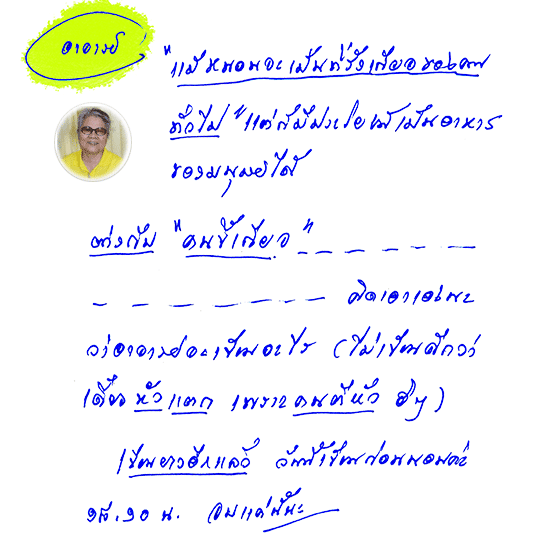 อาจารย์
"แม้หนอนจะเป็นที่รังเกียจของคน
ทั่วไป" แต่ก็มีประโยชน์เป็นอาหาร
ของมนุษย์ได้
ต่างกับ "คนขี้เกียจ" _ _ _ _ _ _ _
_ _ _ _ _ _ _ _ คิดเอาเองนะ
ว่าอาจารย์จะเขียนอะไร (ไม่เขียนดีกว่า
เดี๋ยวหัวแตก เพราะคนตีหัว ฮิๆ)
เขียนยาวอีกแล้ว วันนี้เขียนก่อนนอนค่ะ
น. จบแค่นี้นะ